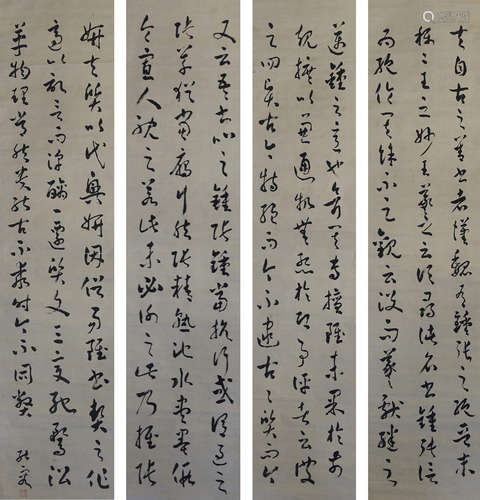 夫自古之善書者漢魏有鍾張之絕晉末
稱二王之妙王羲之云頃尋諸名書鍾張信
為絕倫其餘不足觀云沒而羲獻繼之
邁鍾之意也考其專擅雖未果於前
規摭以兼通故無慚於即事評者云彼
之四賢古今特絕而今不逮古古質而今
又云吾書比之鍾張鍾當抗行或謂過之
張草猶當雁行然張精熟池水盡墨假
令寡人耽之若此未必謝之此乃推張
妍夫質以代興妍因俗易雖書契之作
適以記言而淳醨一遷質文三變馳鶩沿
革物理常然貴能古不乖時今不同弊